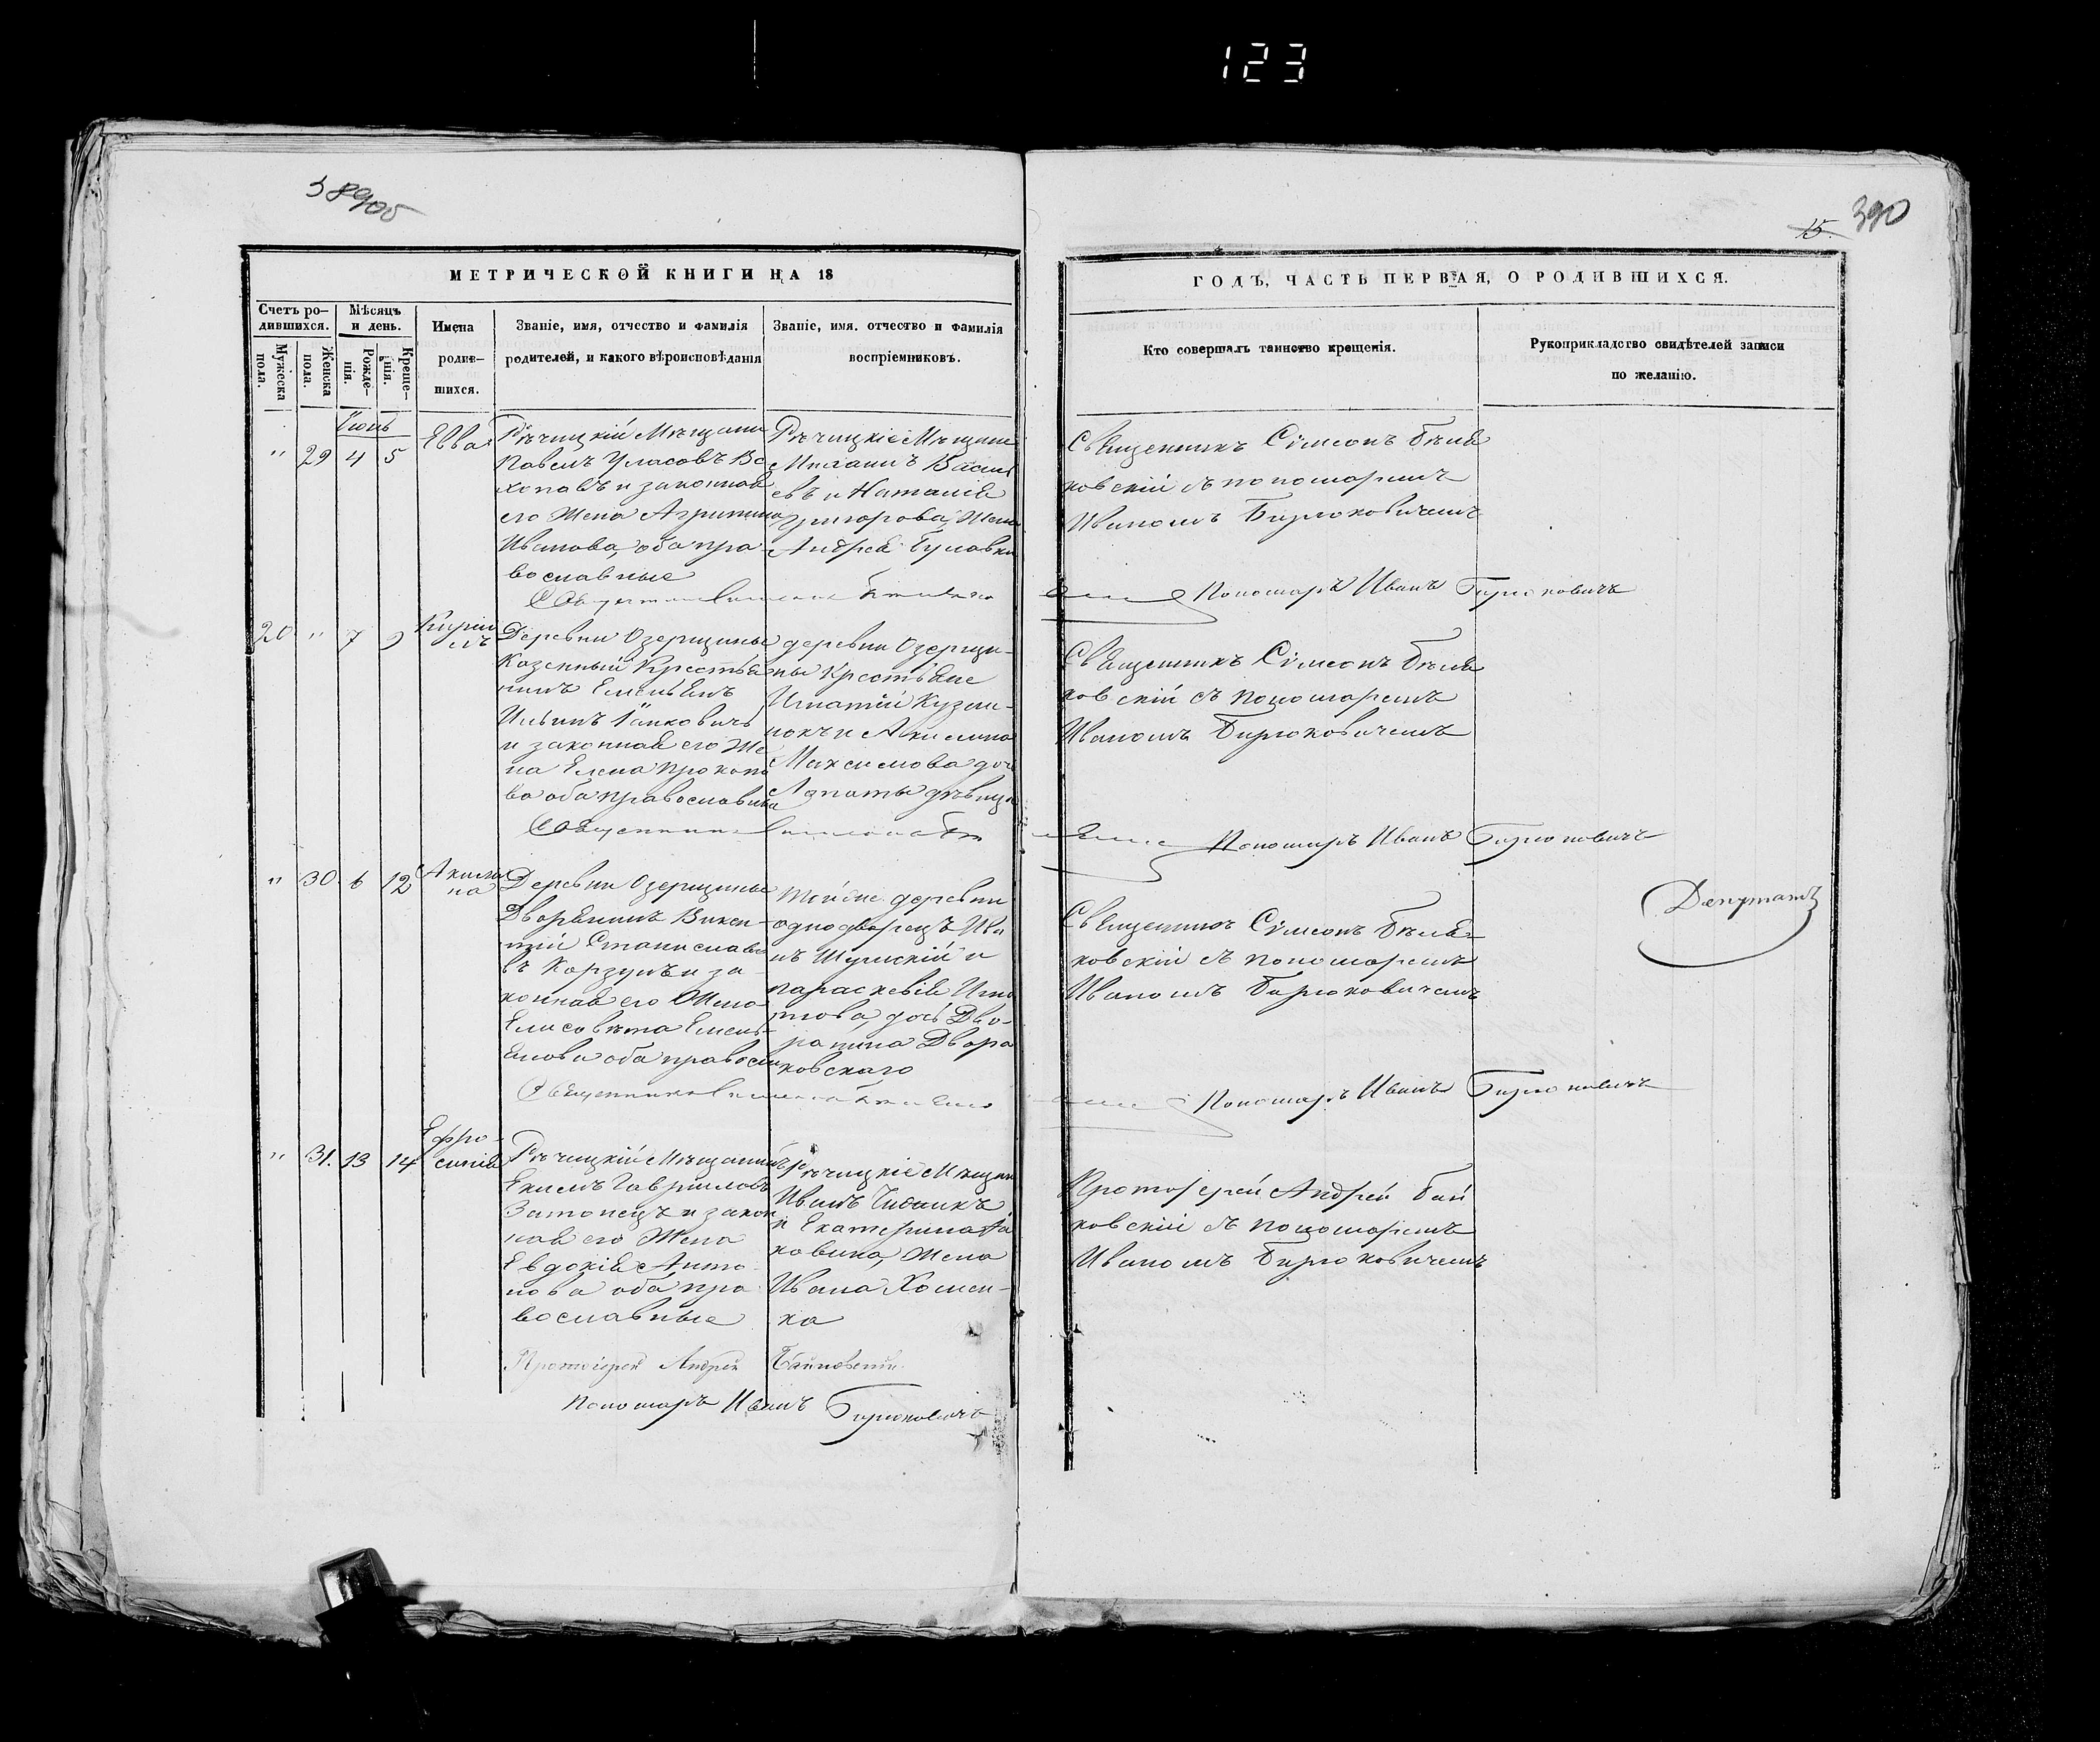 123
389об
15.
390
МЕТРИЧЕСКОЙ КНИГИ НА 18
ГОДЪ, ЧАСТЬ ПЕРВАЯ, О РОДИВШИХСЯ.
Счетъ ро-
дившихся.
Мужеска
пола.
Женска
пола.
Мѣсяцъ
и день.
Рожде-
нія.
Креще-
нія.
Имена
родив-
шихся.
Званіе, имя, отчество и фамилія
родителей, и какого вѣроисповѣданія
Званіе, имя. отчество и фамилія
воспріемниковъ.
Кто совершалъ таинство крещенія.
Рукоприкладство свидѣтелей записи
по желанію.
Іюнь
" 29 4 5
Евва
Рѣчицкій Мѣщани
Павелъ Уласовъ Во
хопавъ и законная
его Жена Агрипина
Иванова, оба пра-
вославные
Рѣчицкіе Мѣщане
Василь
евъ и Наталія
Григорова, Жена
Андрея Булавки
Священникъ Сѵмеонъ Бѣля
ковскій съ пономаремъ
Иваномъ Бирюковичемъ
Священникъ
Пономарь Иванъ Бирюковичъ
20 " 7 9
Кирил
лъ
Деревни Озерщины
Казенный Крестья
нинъ Емельянъ
Ильинъ
и законная его Же
на Елена Прокопо
ва оба православные
деревни Озерщи-
ны Крестьяне
Игнатій Кузме-
нокъ и Акилина
Максимова дочь
дѣвица
Священникъ Сѵмеонъ Бѣля
ковскій съ пономаремъ
Иваномъ Бирюковичемъ
Священникъ
Пономарь Иванъ Бирюковичъ
" 30. 6 12
Акили
на
Деревни Озерщины
Дворянинъ Викен-
тій Станиславо
въ Корзунъ и за-
конная его Жена
Елисовѣта Емель-
янова оба правосл
Той же деревни
однодворецъ Ива
нъ Шумскій и
Параскевія Игна
това, дочь Дво-
рянина Двора
ковскаго
Священникъ Сѵмеонъ Бѣля-
ковскій съ пономаремъ
Иваномъ Бирюковичемъ
Депутатъ
Священникъ
Пономарь Иванъ Бирюковичъ
" 31. 13 14
Ефро-
синія
Рѣчицкій Мѣщанинъ
Екимъ Гавриловъ
Затонецъ и закон
ная его Жена
Евдокія Анто-
нова оба пра
вославные
Рѣчицкіе Мѣщане
Иванъ Чижикъ
и Екатерина Я
ковина, Жена
Ивана Хомен-
ка
Протоіерей Андрей Бай
ковскій съ пономаремъ
Иваномъ Бирюковичемъ
Протоіерей Андрей Байковскій.
Пономарь Иванъ Бирюковичъ